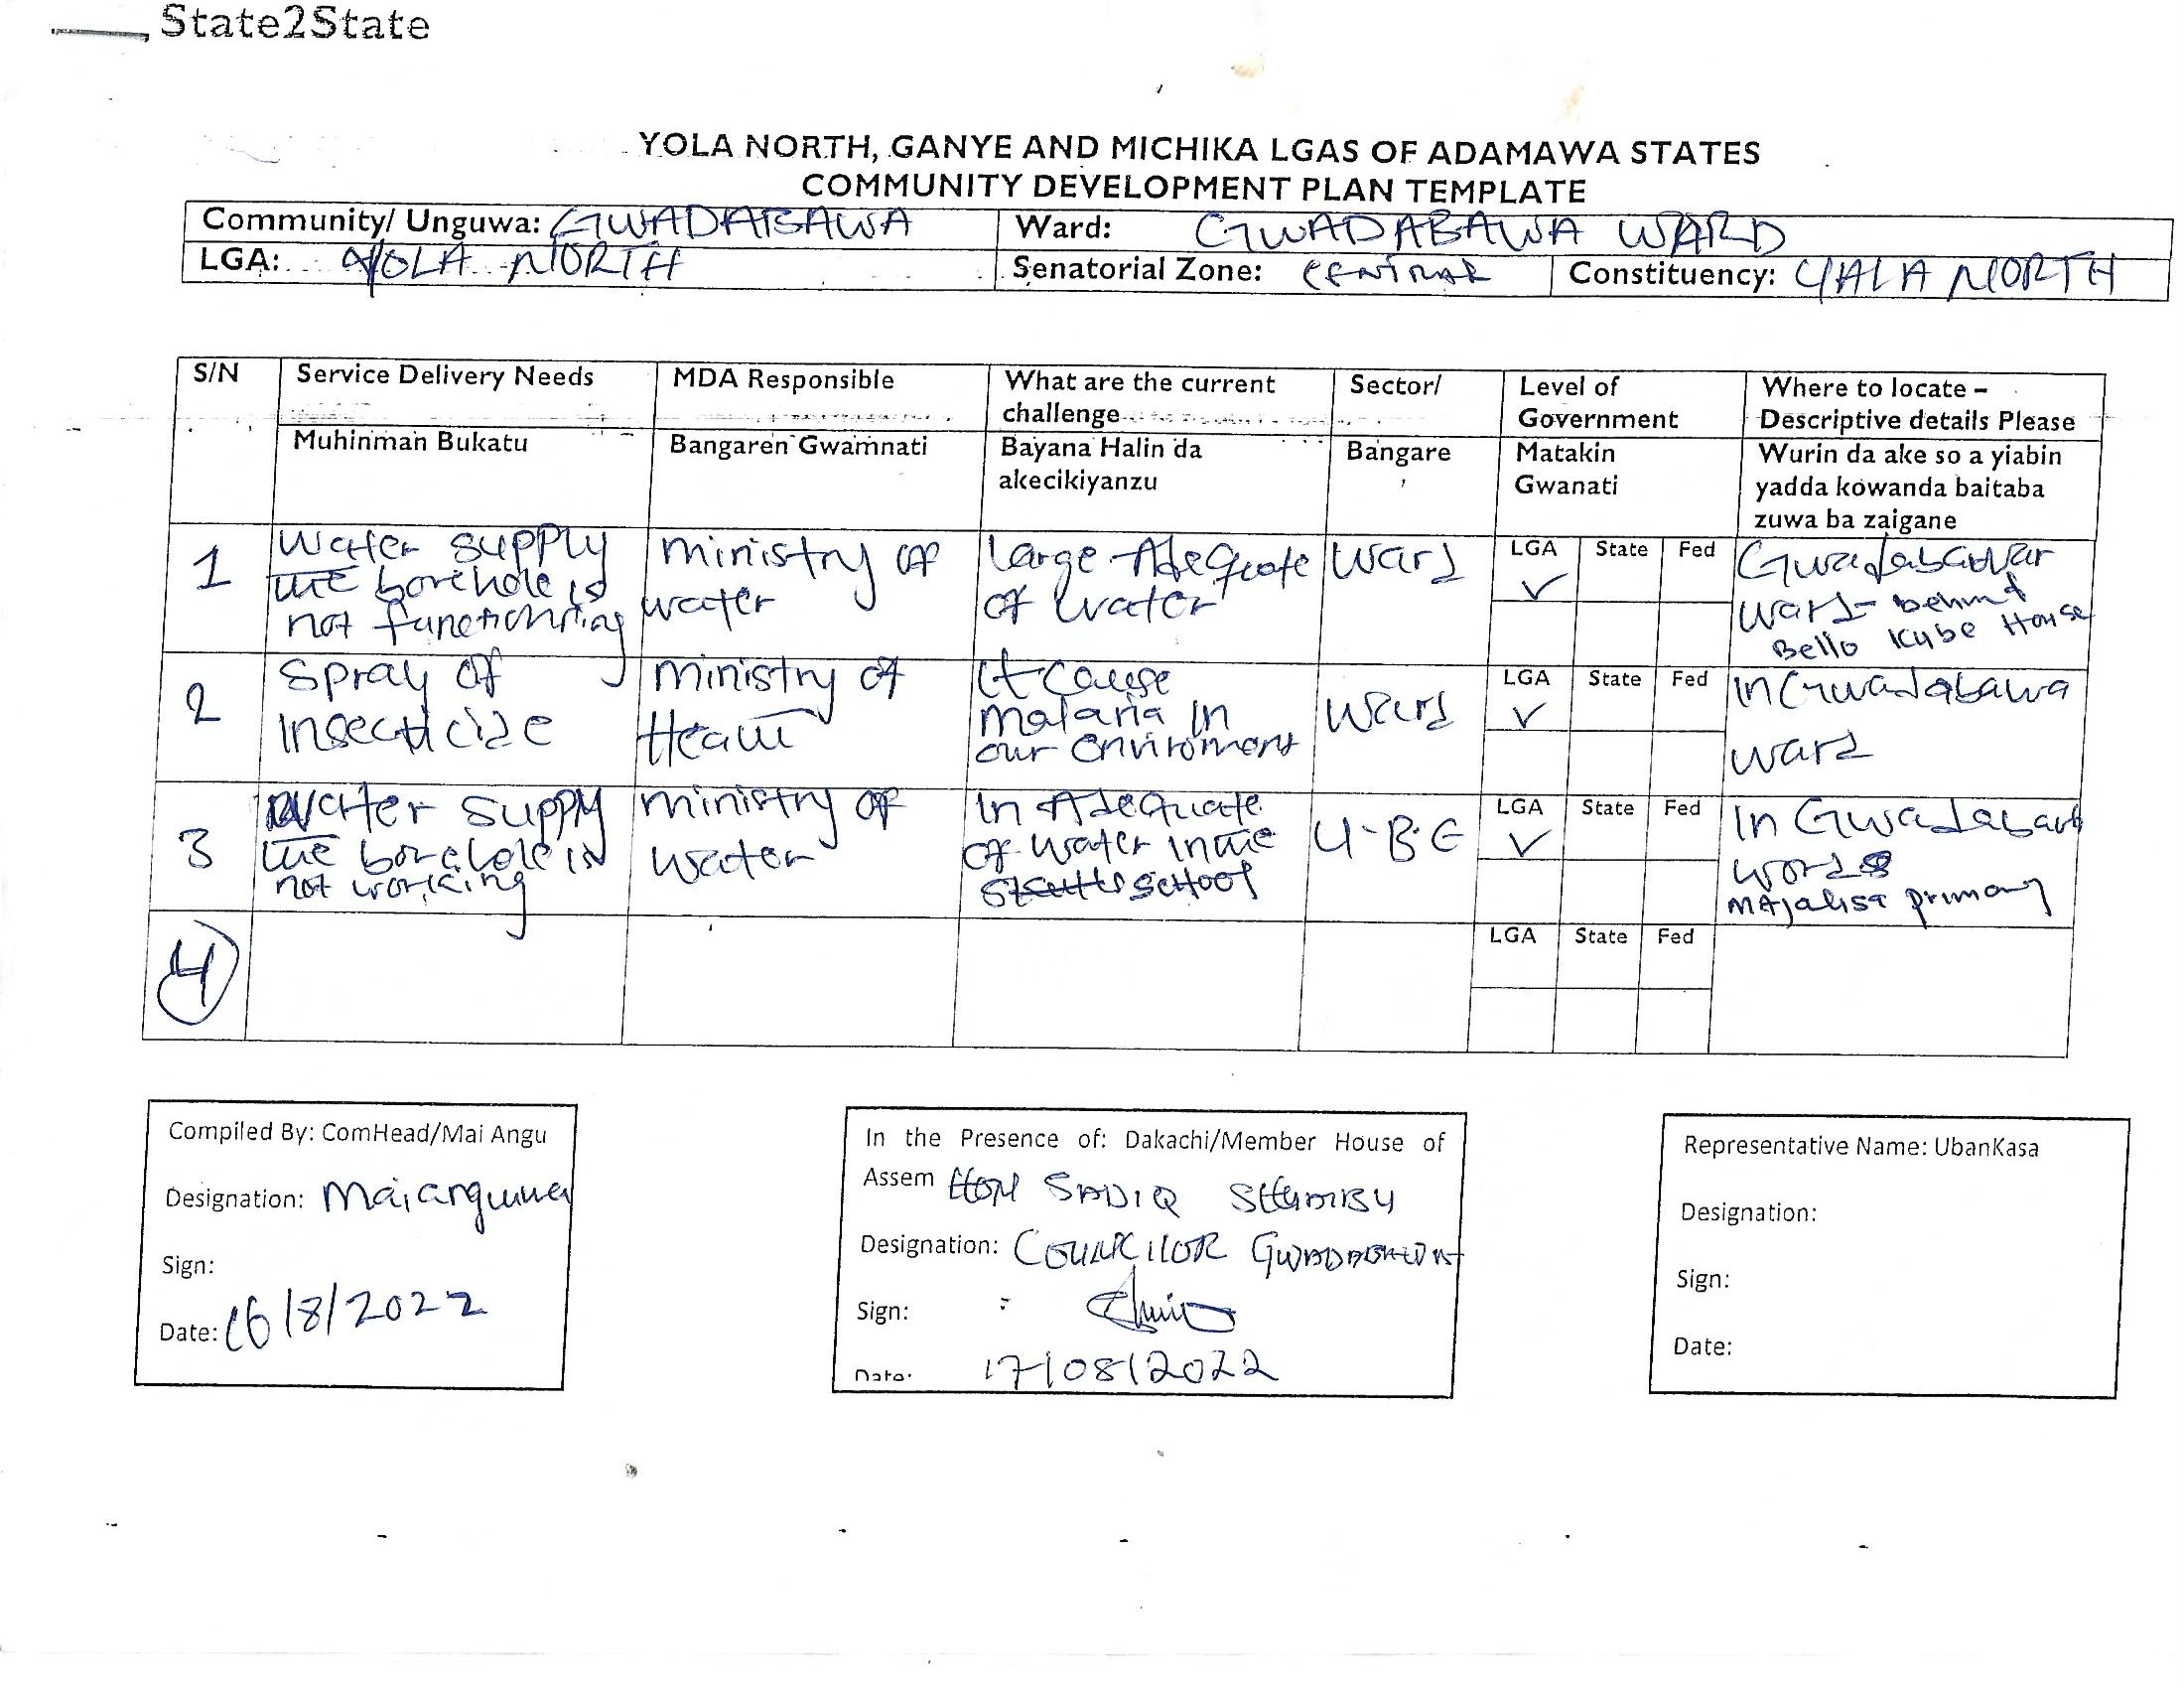 State2State
YOLA NORTH, GANYE AND MICHIKA LGAS OF ADAMAWA STATES
COMMUNITY DEVELOPMENT PLAN TEMPLATE
Community/ Unguwa: GWADABAWA Ward: GWADABAWA WARD
LGA: YOLA NORTH Senatorial Zone: CENTRAL Constituency: YALA NORTH
S/N Service Delivery Needs MDA Responsible What are the current challenge Sector/ Level of Government Where to locate – Descriptive details Please
Muhinman Bukatu Bangaren Gwamnati Bayana Halin da akecikiyanzu Bangare Matakin Gwanati Wurin da ake so a yiabin yadda kowanda baitaba zuwa ba zaigane
1 Water supply the borehole is not functioning ministry of water Large Adequate of water ward LGA ✓ State Fed Gwadabawar ward behind Bello Kube House
2 Spray of insecticide ministry of Health It cause malaria in our enviroment ward LGA ✓ State Fed in Gwadabawa ward
3 Water supply the borehole is not working ministry of water in Adequate of water in the school U-B-E LGA ✓ State Fed In Gwadabawa ward majalisa primary
4 LGA State Fed
Compiled By: ComHead/Mai Angu
Designation: Maianguwa
Sign:
Date: 16/8/2022
In the Presence of: Dakachi/Member House of
Assem HON SADIQ
Designation: COUNCILOR GWADABAWA
Sign:
Date: 17/08/2022
Representative Name: UbanKasa
Designation:
Sign:
Date: